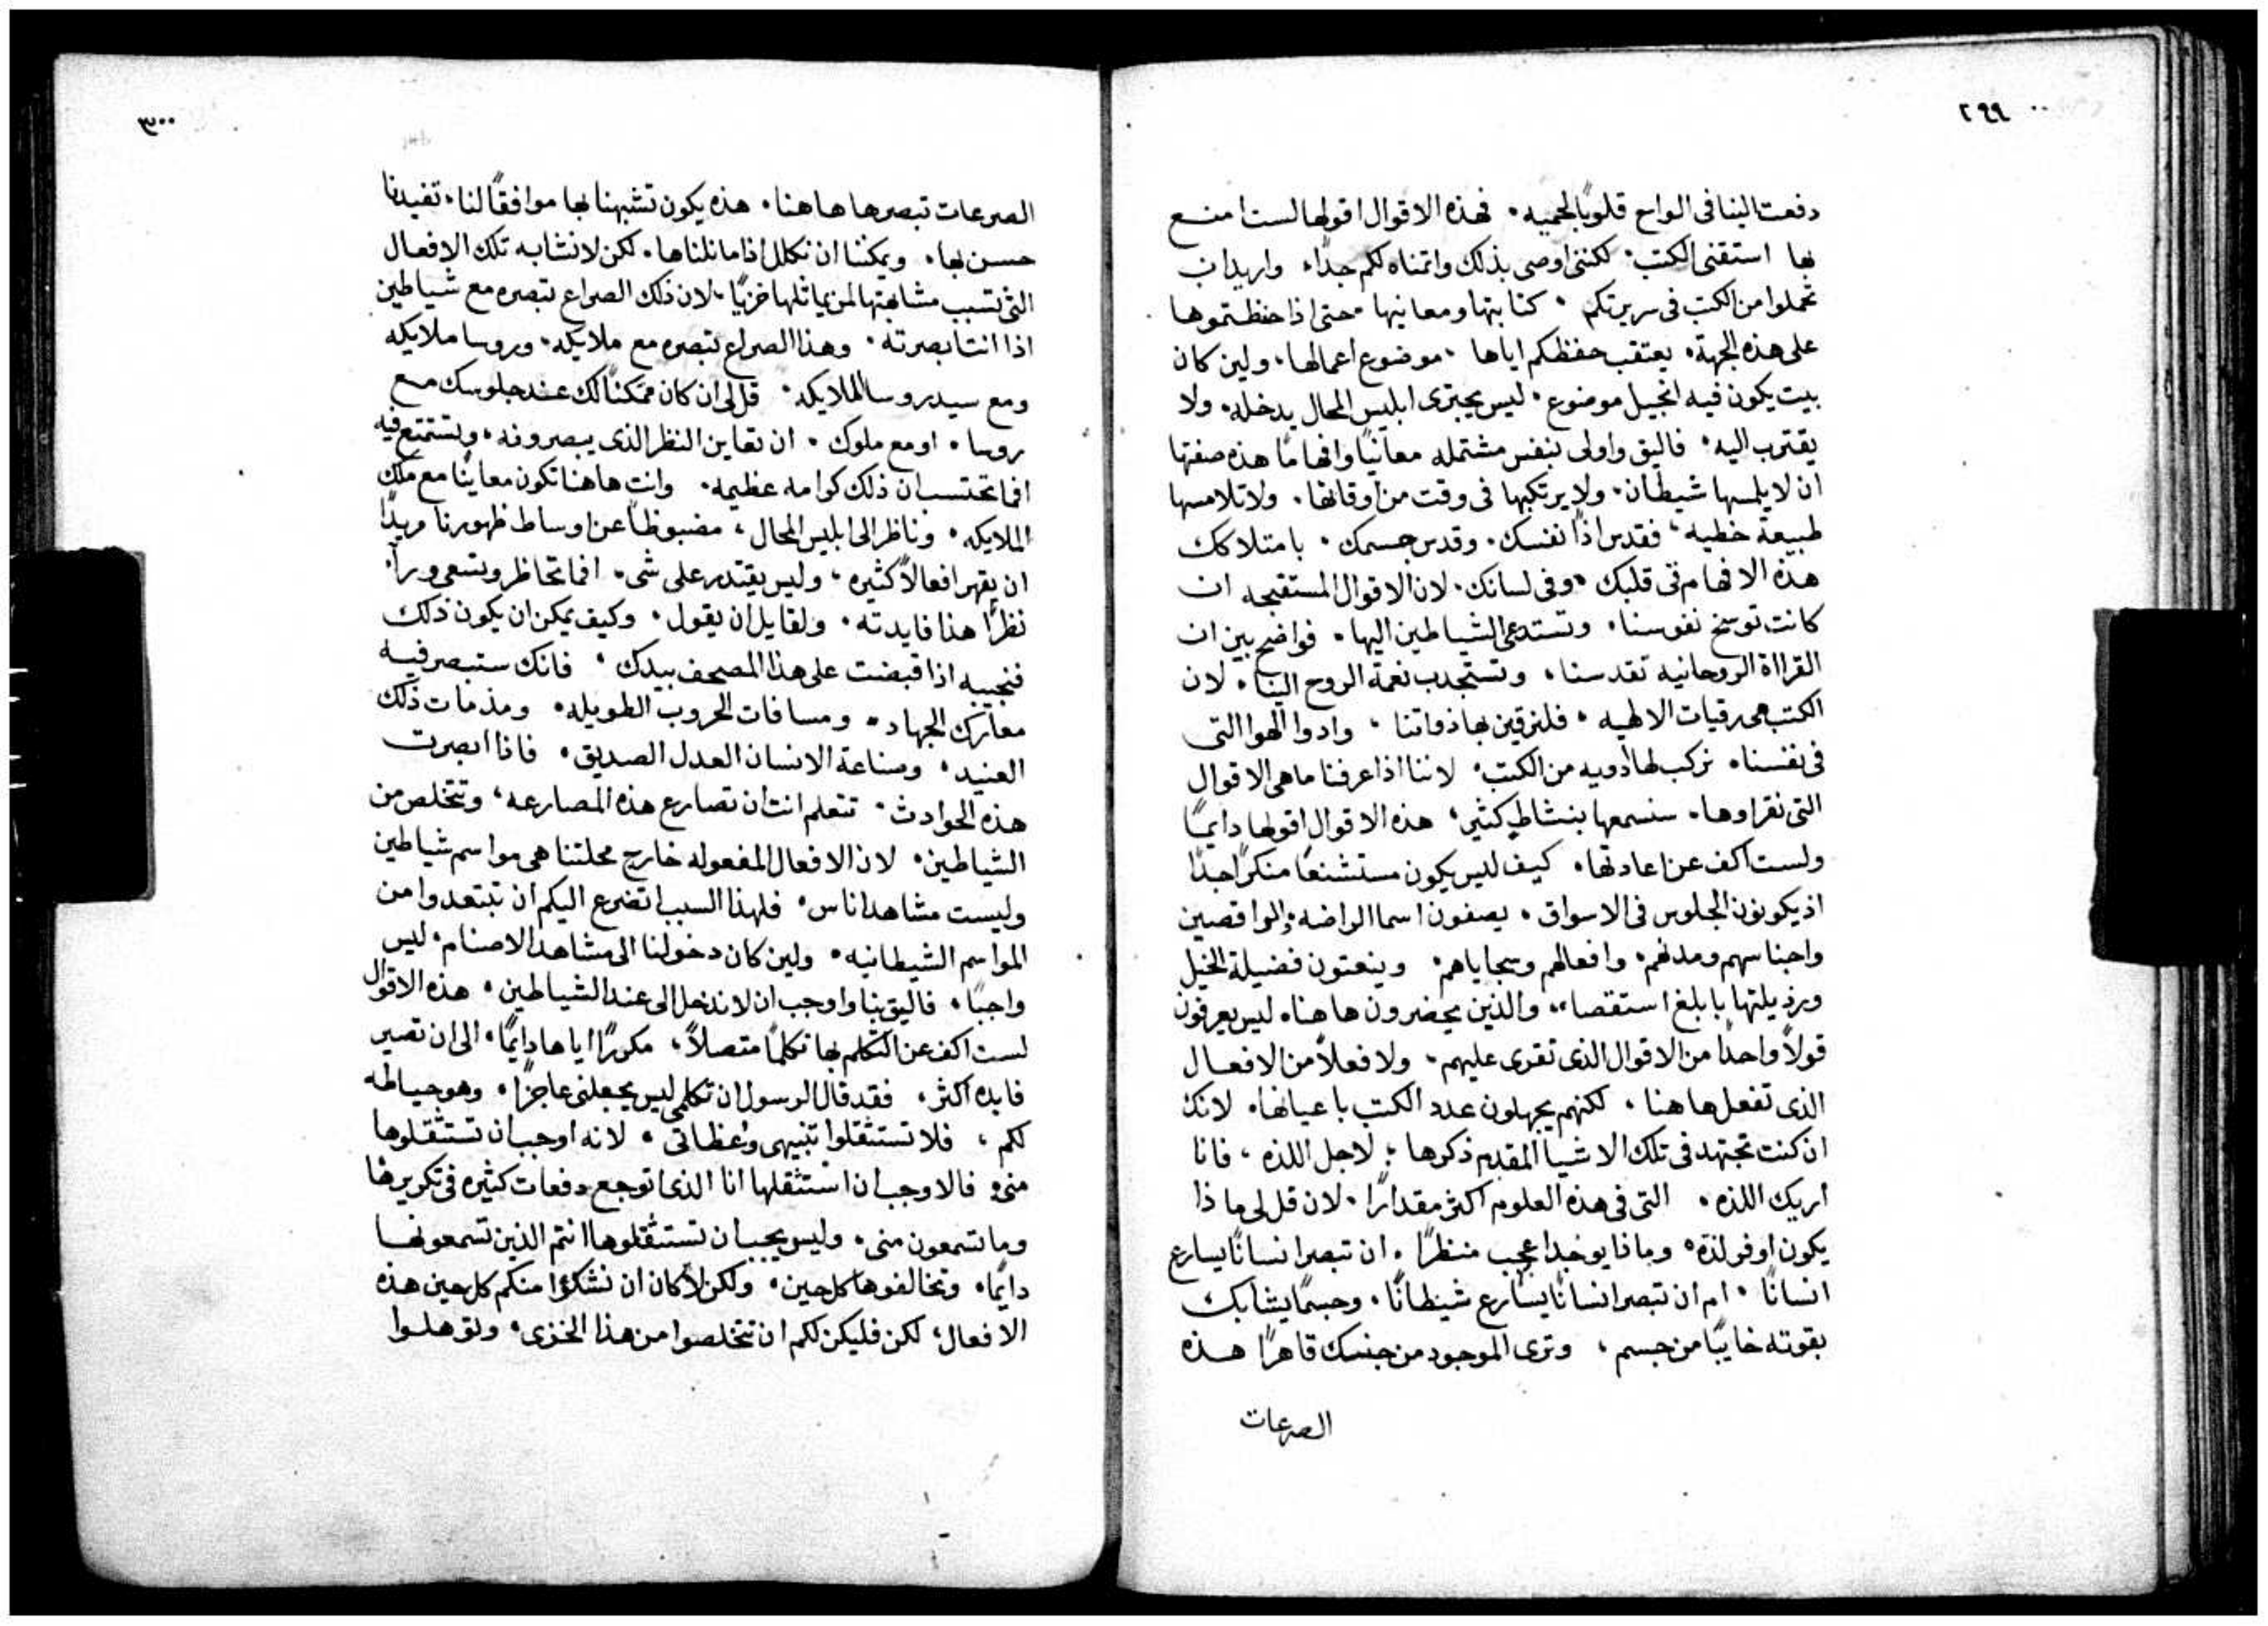 ٢٩٩
دفعت الينا فى الواح قلوبًا لحميه. فهذه الاقوال اقولها لست امنع
بها استقنى الكتب. لكننى اوصى بذلك واتمناه لكم جدًا. واريد ان
تحملوا من الكتب فى سريرتكم. كتابتها ومعانيها. حتى اذا حفظتموها
على هذه الجهة. يعتقب حفظكم اياها. موضوع اعمالها. ولين كان
بيت يكون فيه انجيل موضوع. ليس يجترى ابليس المحال يدخله. ولا
يقترب اليه. فاليق واولى بنفس مشتمله معانيًا وافهامًا هذه صفتها
ان لا يلمسها شيطان. ولا يرتكبها فى وقت من اوقاتها. ولا تلامسها
طبيعة خطيه. فقدس اذًا نفسك. وقدس جسمك. بامتلاكك
هذه الافهام فى قلبك. وفى لسانك. لان الاقوال المستقبحه ان
كانت توسخ نفوسنا. وتستدعى الشياطين اليها. فواضح بين ان
القراة الروحانيه تقدسنا. وتستجدب نعمة الروح الينا. لان
الكتب هى رقيات الالهيه. فلنرقين بها ذواتنا. وادوا الهوا التى
فى نفسنا. نركب لها ادويه من الكتب. لاننا اذا عرفنا ما هى الاقوال
التى نقراوها. سنسمعها بنشاط كثير. هذه الاقوال اقولها دايمًا
ولست اكف عن اعادتها. كيف ليس يكون مستشنعًا منكرًا جدًا
اذ يكونون الجلوس فى الاسواق. يصفون اسما الراضه والراقصين
واجناسهم ومدنهم. وافعالهم وسجاياهم. وينعتون فضيلة الخيل
ورذيلتها بابلغ استقصا. والذين يحضرون هاهنا. ليس يعرفون
قولًا واحدًا من الاقوال الذى تقرى عليهم. ولا فعلًا من الافعال
الذى تفعل هاهنا. لكنهم يجهلون عدد الكتب باعيانها. لانك
ان كنت تجتهد فى تلك الاشيا المقدم ذكرها. لاجل اللذه. فانا
اريك اللذه. التى فى هذه العلوم اكثر مقدارًا. لان قل لى ماذا
يكون اوفر لذة. وماذا يوجد اعجب منظرًا. ان تبصر انسانًا يسارع
انسانًا. ام ان تبصر انسانًا يسارع شيطانًا. وجسمًا يشابك
بقوته خايبًا من جسم. وترى الموجود من جنسك قاهرًا هذه
الصرعات
٣٠٠
الصرعات تبصرها هاهنا. هذه يكون تشبهنا بها موافقًا لنا. تفيدنا
حسن بها. ويمكننا ان نكلل اذا ما نلناها. لكن لا نشابه تلك الافعال
التى تسبب مشابهتها لمن يماثلها خزيًا. لان ذلك الصراع تبصره مع شياطين
اذا انت ابصرته. وهذا الصراع تبصره مع ملايكه. وروسا ملايكه
ومع سيد روسا الملايكه. قل لى ان كان ممكنًا لك عند جلوسك مع
روسا. او مع ملوك. ان تعاين النظر الذى يبصرونه. وتستمتع فيه
افما تحتسب ان ذلك كرامه عظيمه. وانت هاهنا تكون معاينًا مع ملك
الملايكه. وناظر الى ابليس المحال. مضبوطًا عن اوساط ظهورنا مريدًا
ان يقهر افعالًا كثيره. وليس يقتدر على شى. افما تحاظر وتسعى ورا
نظرًا هذا فايدته. ولقايل ان يقول. وكيف يمكن ان يكون ذلك
فنجيبه اذا قبضت على هذا المصحف بيدك. فانك ستبصر فيه
معارك الجهاد. ومسافات الحروب الطويله. ومذمات ذلك
العنيد. وصناعة الانسان العدل الصديق. فاذا ابصرت
هذه الحوادث. تتعلم انت ان تصارع هذه المصارعه. وتتخلص من
الشياطين. لان الافعال المفعوله خارج محلتنا هى مواسم شياطين
وليست مشاهد اناس. فلهذا السبب اتضرع اليكم ان تبتعدوا من
المواسم الشيطانيه. ولين كان دخولنا الى مشاهد الاصنام. ليس
واجبًا. فاليق بنا واوجب ان لا ندخل الى عند الشياطين. هذه الاقوال
لست اكف عن التكلم بها تكلمًا متصلًا. مكررًا اياها دايمًا. الى ان تصير
فايده اكثر. فقد قال الرسول ان تكلمى ليس يجعلنى عاجزًا. وهو حياطه
لكم. فلا تستثقلوا تنبيهى وعظاتى. لانه اوجب ان تستثقلوها
منى. فالاوجب ان استثقلها انا الذى اتوجع دفعات كثيره فى تكريرها
وما تسمعون منى. وليس يجب ان تستثقلوها انتم الذين تسمعونها
دايمًا. وتخالفوها كل حين. ولكن لا كان ان نشكوا منكم كل حين هذه
الافعال. لكن فليكن لكم ان تتخلصوا من هذا الخزى. وتوهلوا